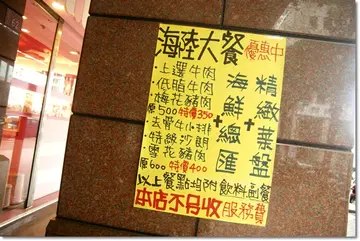 海陸大餐 優惠中
·上選牛肉
·低脂牛肉
·梅花豬肉
原500特價350
·去骨牛小排
·特級沙朗
·雪花豬肉
原600特價400
+
海鮮總匯
+
精緻菜盤
以上餐點均附飲料副餐
本店不另收服務費